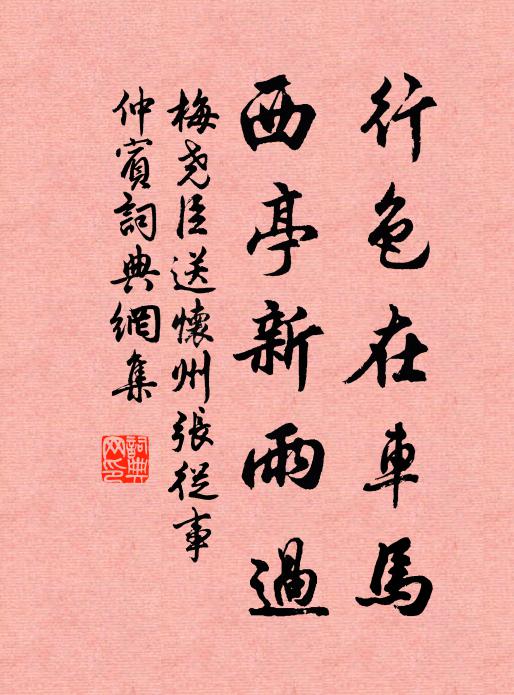 行色在車馬
西亭新雨過
梅堯臣送懷州張從事
仲賓詞典網集
詞典网印